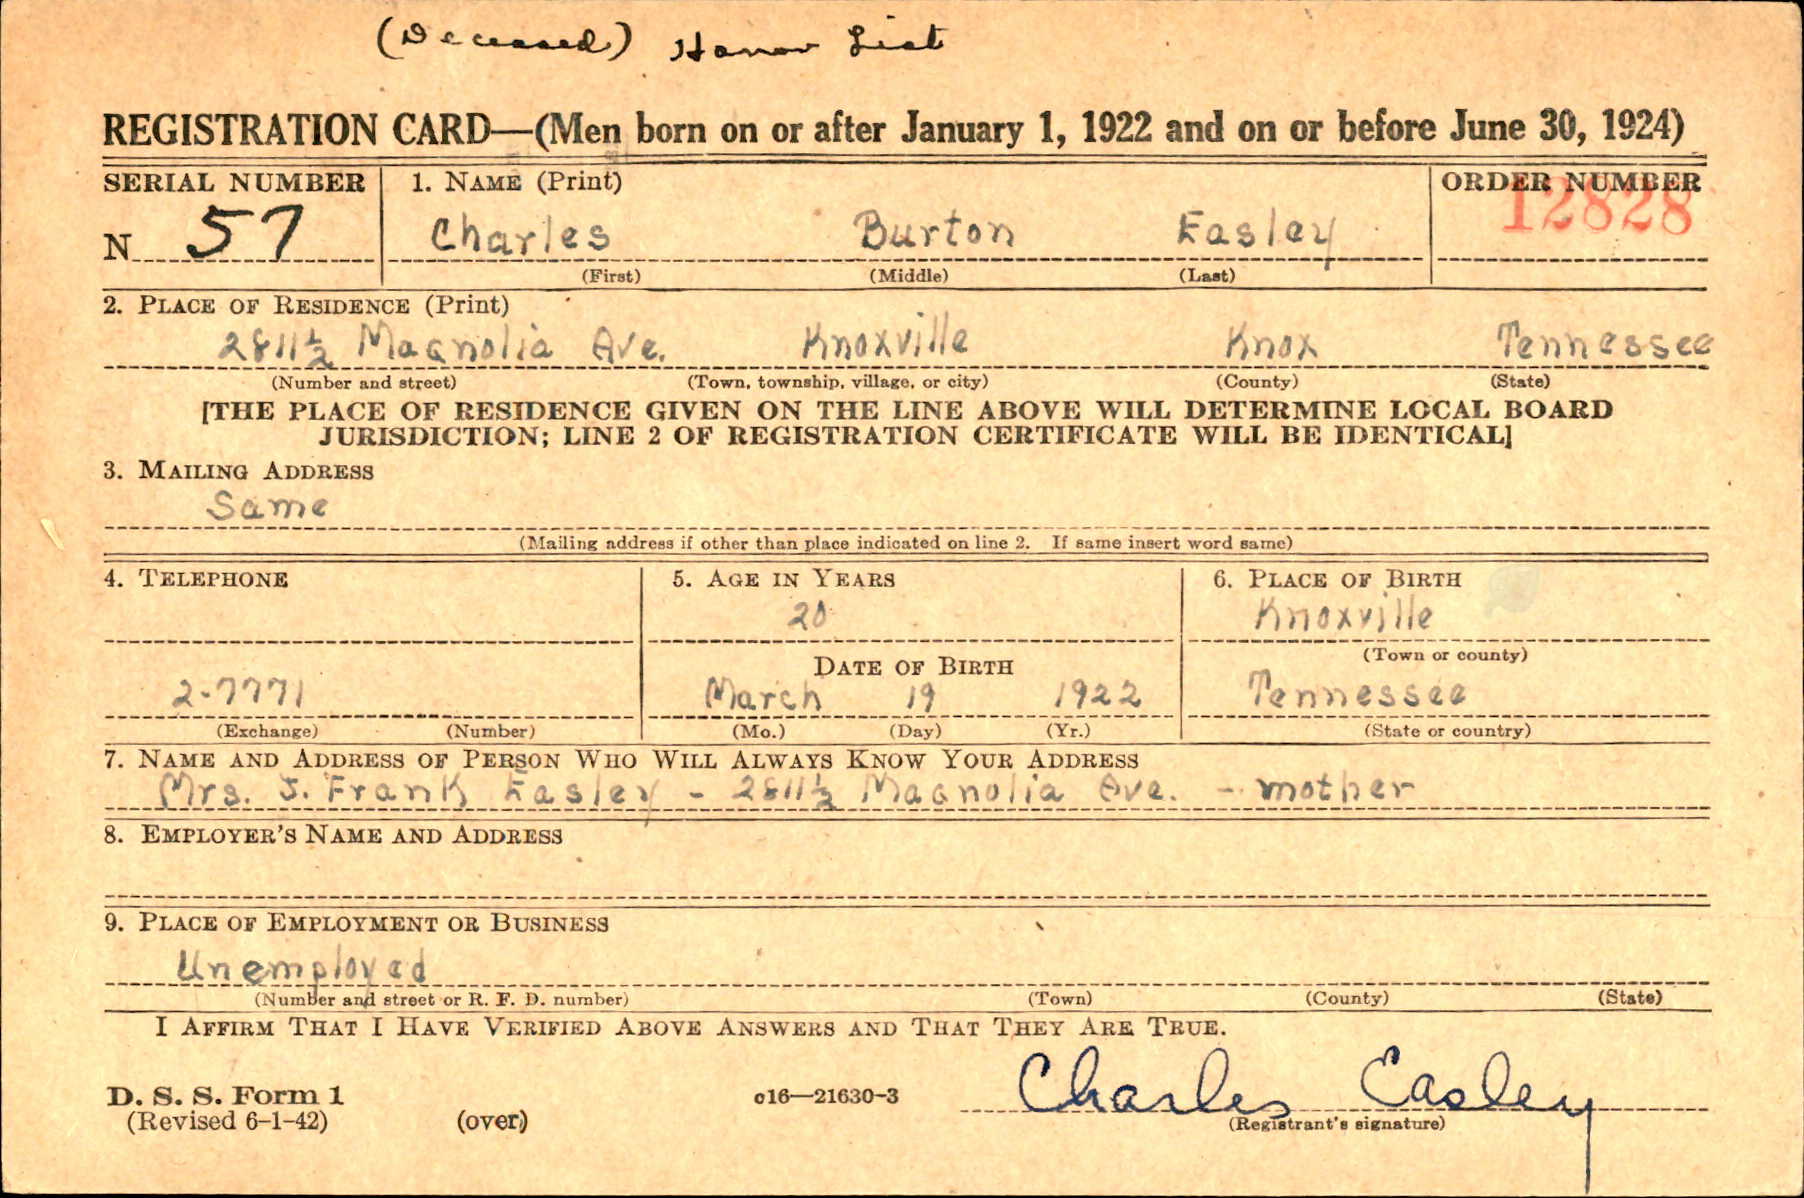 (Deceased) Honor List
REGISTRATION CARD—(Men born on or after January 1, 1922 and on or before June 30, 1924)
SERIAL NUMBER 1. NAME (Print) ORDER NUMBER
N 57 Charles Burton Easley 12828
(First) (Middle) (Last)
2. PLACE OF RESIDENCE (Print)
2811½ Magnolia Ave. Knoxville Knox Tennessee
(Number and street) (Town, township, village, or city) (County) (State)
[THE PLACE OF RESIDENCE GIVEN ON THE LINE ABOVE WILL DETERMINE LOCAL BOARD
JURISDICTION; LINE 2 OF REGISTRATION CERTIFICATE WILL BE IDENTICAL]
3. MAILING ADDRESS
Same
(Mailing address if other than place indicated on line 2. If same insert word same)
4. TELEPHONE 5. AGE IN YEARS 6. PLACE OF BIRTH
20 Knoxville
(Town or county)
DATE OF BIRTH
2-7771 March 19 1922 Tennessee
(Exchange) (Number) (Mo.) (Day) (Yr.) (State or country)
7. NAME AND ADDRESS OF PERSON WHO WILL ALWAYS KNOW YOUR ADDRESS
Mrs. J. Frank Easley - 2811½ Magnolia Ave. - mother
8. EMPLOYER'S NAME AND ADDRESS
9. PLACE OF EMPLOYMENT OR BUSINESS
Unemployed
(Number and street or R. F. D. number) (Town) (County) (State)
I AFFIRM THAT I HAVE VERIFIED ABOVE ANSWERS AND THAT THEY ARE TRUE.
D. S. S. Form 1 c16—21630-3 Charles Easley
(Revised 6-1-42) (over) (Registrant's signature)